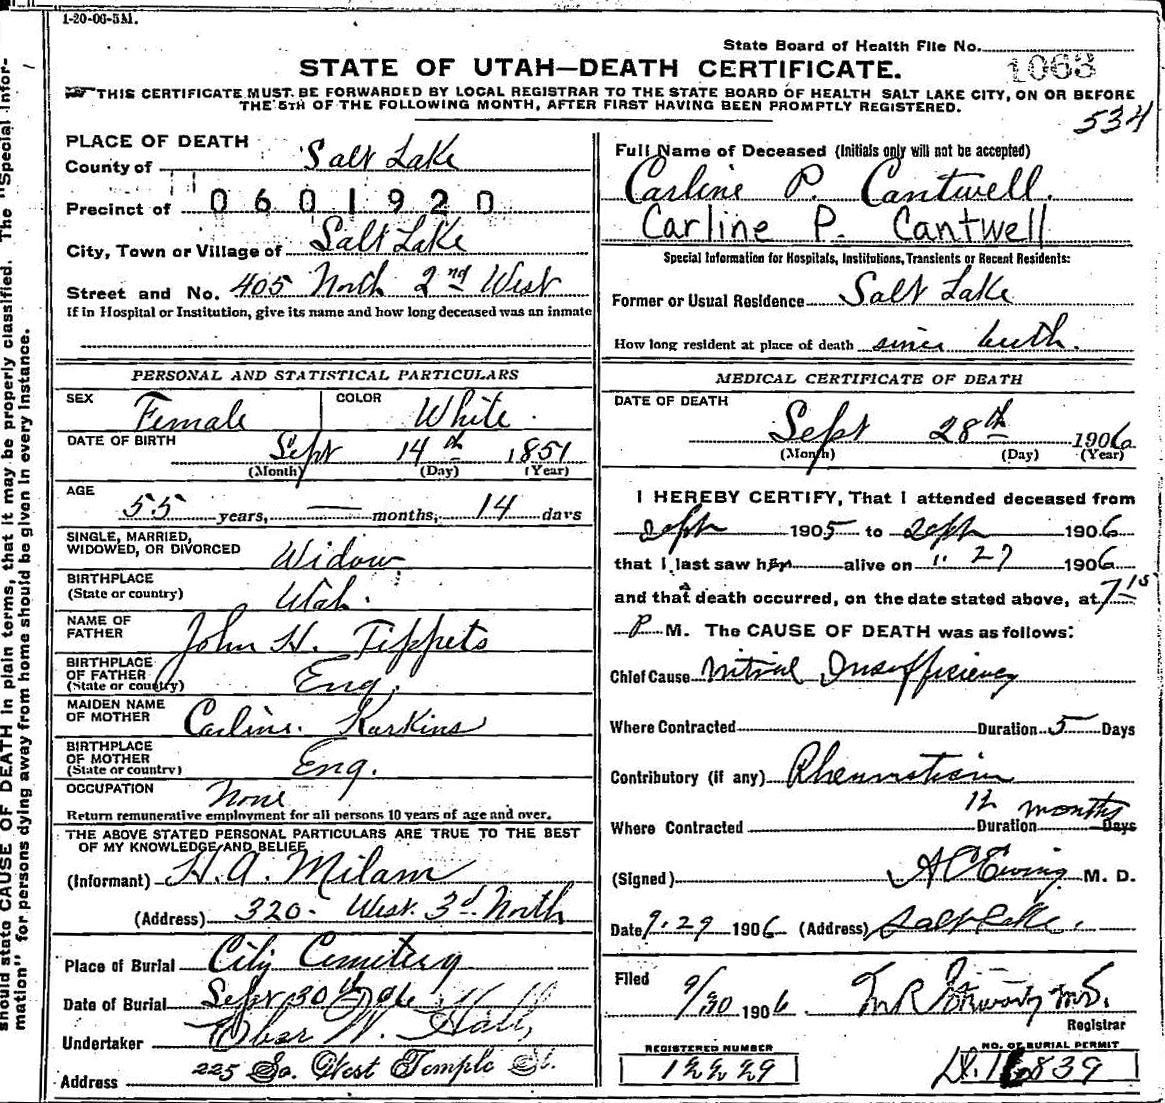 1-20-06-5M.
State Board of Health File No. 1063
STATE OF UTAH—DEATH CERTIFICATE.
THIS CERTIFICATE MUST BE FORWARDED BY LOCAL REGISTRAR TO THE STATE BOARD OF HEALTH SALT LAKE CITY, ON OR BEFORE
THE 5TH OF THE FOLLOWING MONTH, AFTER FIRST HAVING BEEN PROMPTLY REGISTERED.
534
PLACE OF DEATH
County of Salt Lake
Precinct of 0601920
City, Town or Village of Salt Lake
Street and No. 405 North 2nd West
If in Hospital or Institution, give its name and how long deceased was an inmate
Full Name of Deceased (Initials only will not be accepted)
Carline P. Cantwell.
Carline P. Cantwell
Special Information for Hospitals, Institutions, Transients or Recent Residents:
Former or Usual Residence Salt Lake
How long resident at place of death since birth.
PERSONAL AND STATISTICAL PARTICULARS
SEX Female COLOR White.
DATE OF BIRTH Sept 14th 1851
(Month) (Day) (Year)
AGE
55 years, — months, 14 days
SINGLE, MARRIED,
WIDOWED, OR DIVORCED Widow
BIRTHPLACE
(State or country) Utah.
NAME OF
FATHER John H. Tippets
BIRTHPLACE
OF FATHER
(State or country) Eng.
MAIDEN NAME
OF MOTHER Carline. Karkins
BIRTHPLACE
OF MOTHER
(State or country) Eng.
OCCUPATION None
Return remunerative employment for all persons 10 years of age and over.
THE ABOVE STATED PERSONAL PARTICULARS ARE TRUE TO THE BEST
OF MY KNOWLEDGE AND BELIEF
(Informant) H. A. Milam
(Address) 320- West. 3d North
Place of Burial City Cemetery
Date of Burial Sept 30th 1906
Undertaker Eber W. Hall
Address 225 So. West Temple St.
MEDICAL CERTIFICATE OF DEATH
DATE OF DEATH
Sept 28th 1906
(Month) (Day) (Year)
I HEREBY CERTIFY, That I attended deceased from
Sept 1905 to Sept 1906
that I last saw her alive on " 27 1906
and that death occurred, on the date stated above, at 7 15
P M. The CAUSE OF DEATH was as follows:
Chief Cause Mitral Insufficiency
Where Contracted Duration 5 Days
Contributory (if any) Rheumatism
12 months
Where Contracted Duration Days
(Signed) A C Ewing M. D.
Date 9.29 1906 (Address) Salt Lake.
Filed 9/30 1906
Registrar
REGISTERED NUMBER
12229
NO. OF BURIAL PERMIT
839
should state CAUSE OF DEATH in plain terms, that it may be properly classified. The "Special Infor-
mation" for persons dying away from home should be given in every instance.